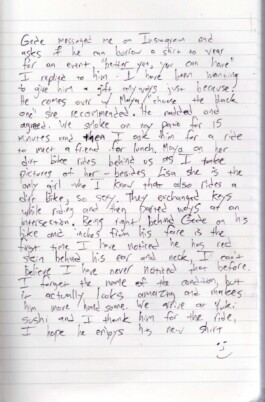 Gede messaged me on Instagram and
asks if he can borrow a shirt to wear
for an event, "better yet, you can have"
I replied to him - I have been wanting
to give him a gift anyways just because.
He comes over w/ Maya, "choose the black
one" she recommended. He nodded and
agreed. We smoke on my patio for 15
minutes and then I ask him for a ride
to meet a friend for lunch. Maya on her
dirt bike rides behind us as I take
pictures of her - besides Lisa she is the
only girl who I know that also rides a
dirt bike, so sexy. They exchanged keys
while riding and then parted ways at an
intersection. Being right behind Gede on his
bike and inches from his face is the
first time I have noticed he has red
stein behind his ear and neck, I can't
believe I have never noticed that before.
I forget the name of the condition, but
it actually looks amazing and makes
him more handsome. We arrive at Yuki
sushi and I thank him for the ride,
I hope he enjoys his new shirt